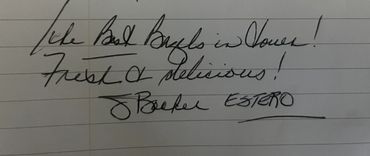 The Best Bagels in Town!
Fresh & Delicious!
J Becker ESTERO